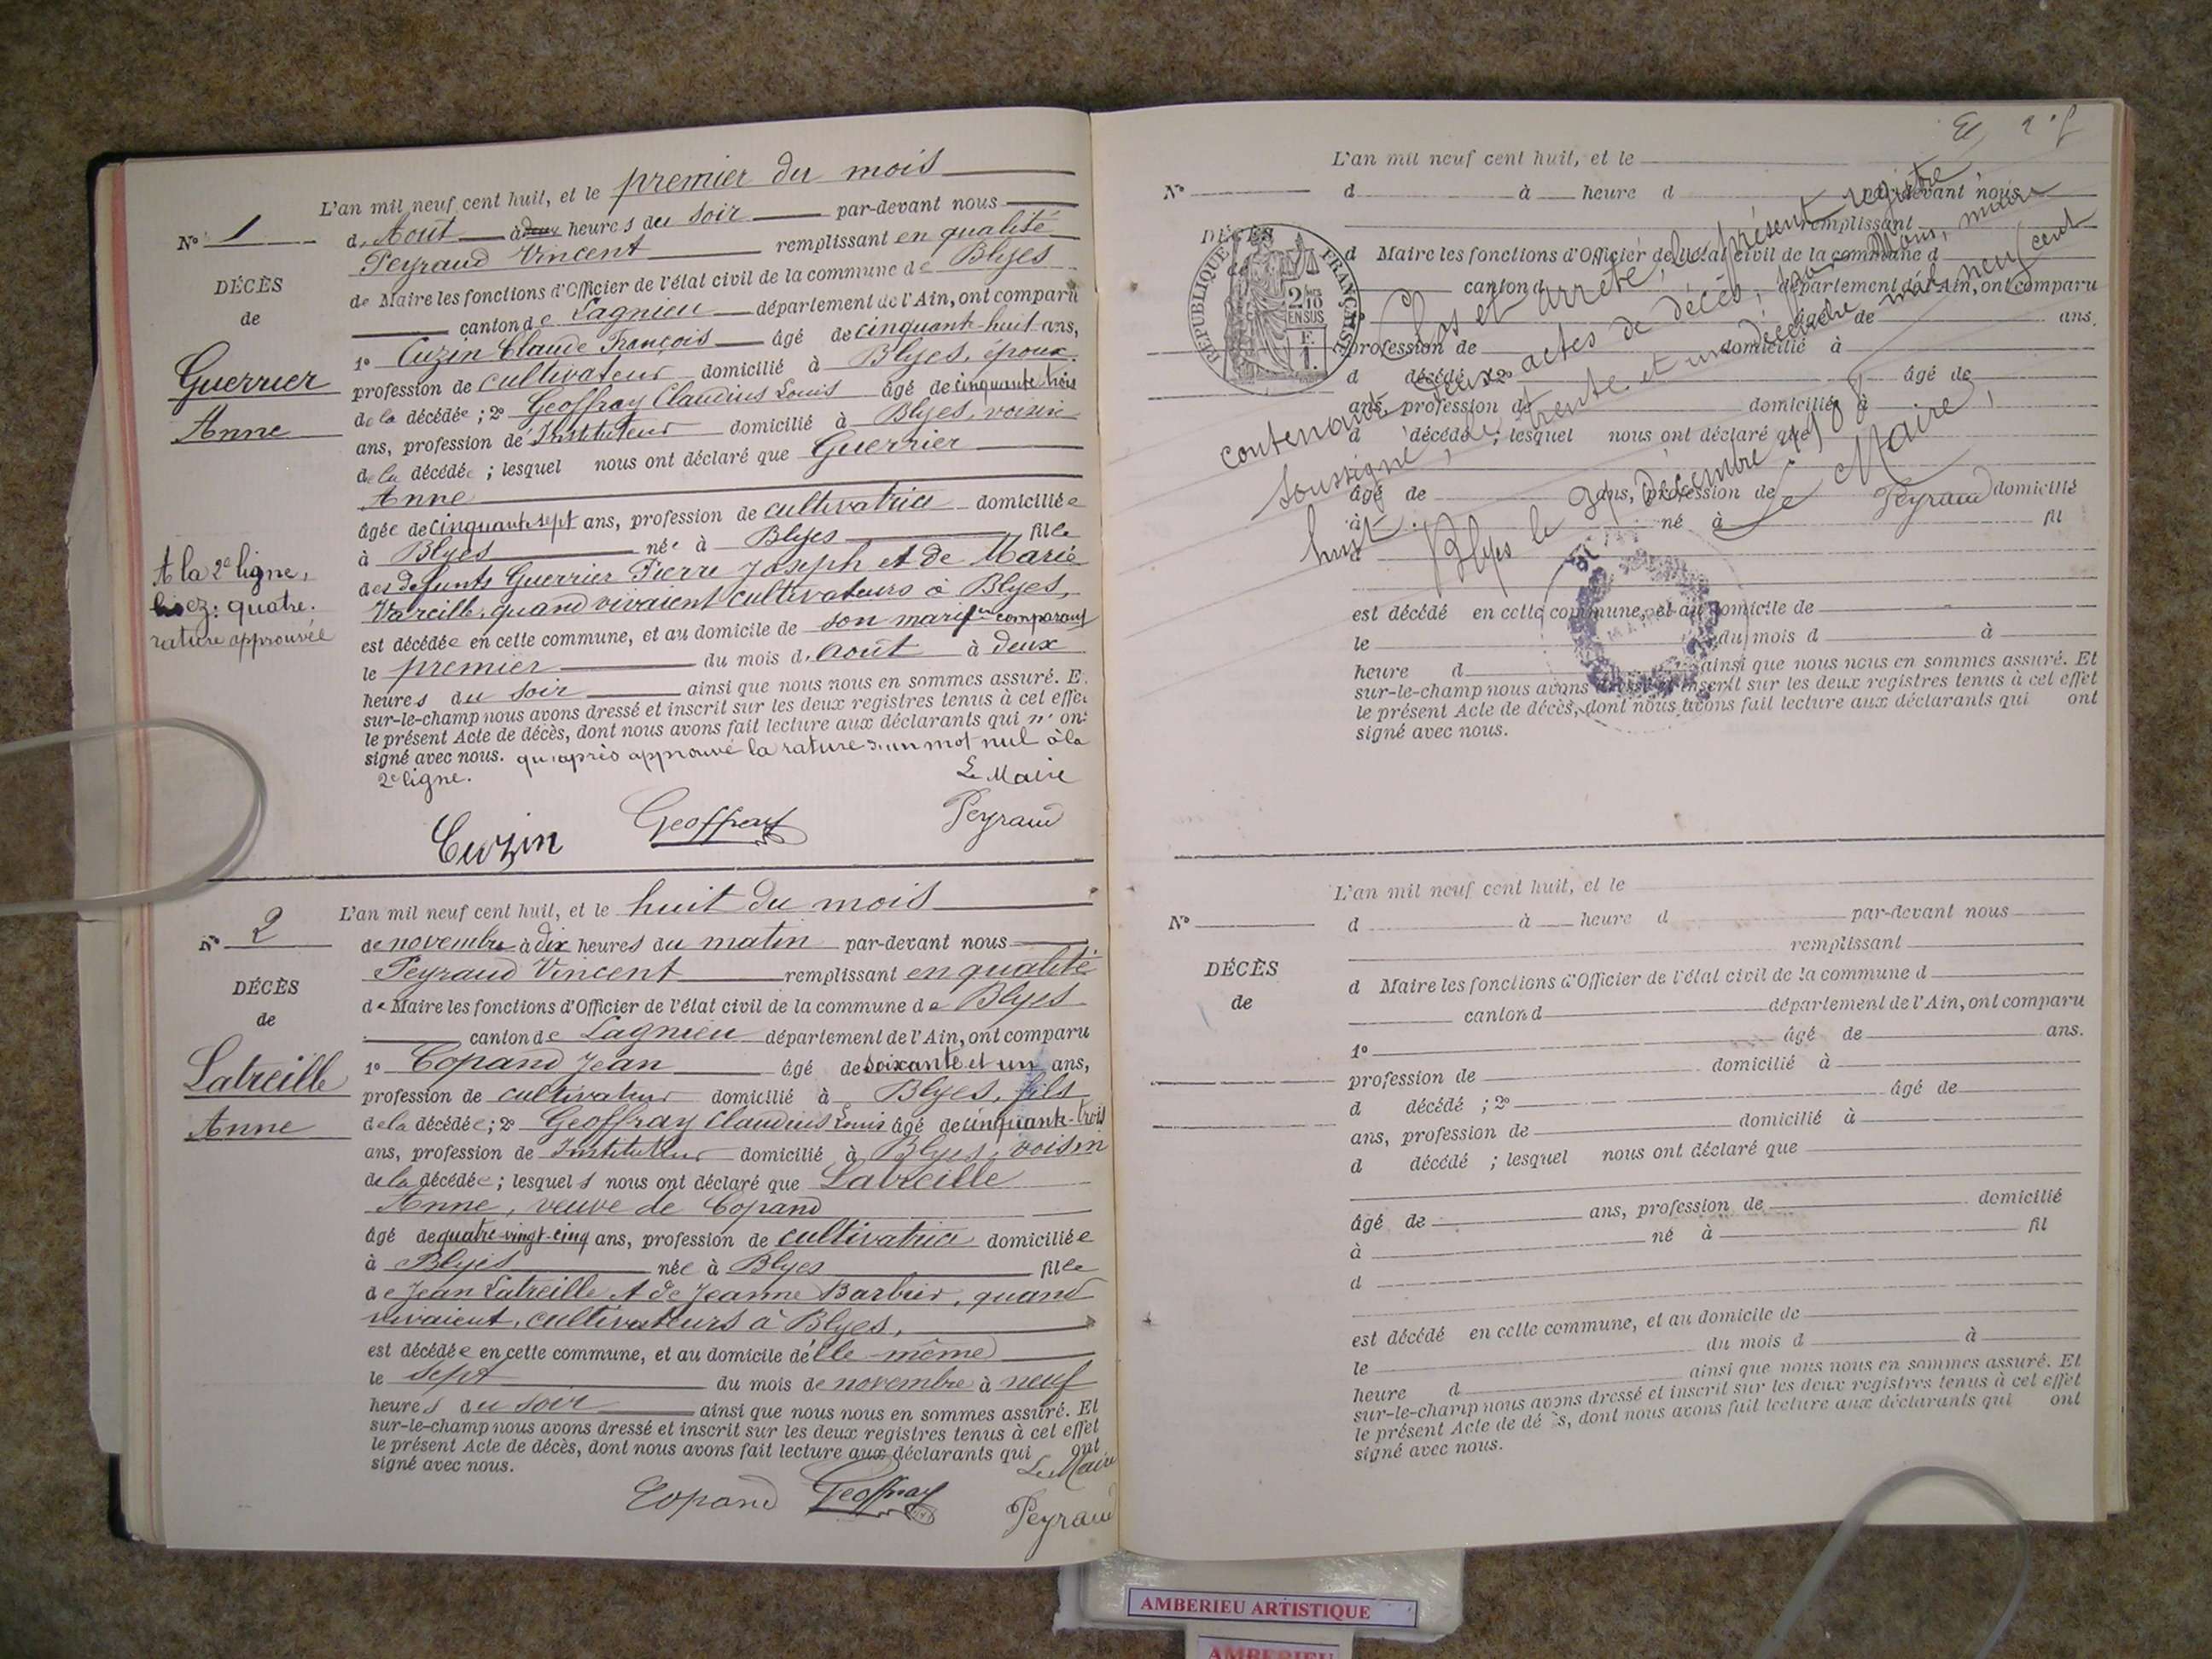 L'an mil neuf cent huit, et le premier du mois
N° 1 d'Août à deux heures du soir par-devant nous
Peyraud Vincent remplissant en qualité
DÉCÈS
de Maire les fonctions d'Officier de l'état civil de la commune de Blyes
de
canton de Lagnieu département de l'Ain, ont comparu
1° Cuzin Claude François âgé de cinquante-huit ans,
Guerrier
profession de cultivateur domicilié à Blyes, époux
de la décédée ; 2° Geoffray Claudius Louis âgé de cinquante trois
Anne
ans, profession de Instituteur domicilié à Blyes, voisin
de la décédée ; lesquel nous ont déclaré que Guerrier
Anne
âgée de cinquante sept ans, profession de cultivatrice domiciliée
à Blyes née à Blyes fille
des defunts Guerrier Pierre Joseph et de Marie
Vareille, quand vivaient cultivateurs à Blyes,
A la 2e ligne,
lisez : quatre.
rature approuvée
est décédée en cette commune, et au domicile de son mari comparant
le premier du mois d'Août à deux
heures du soir ainsi que nous nous en sommes assuré. E
sur-le-champ nous avons dressé et inscrit sur les deux registres tenus à cet effe
le présent Acte de décès, dont nous avons fait lecture aux déclarants qui n'ont
signé avec nous. qu'après approuvé la rature d'un mot nul à la
2e ligne.
Le Maire
Cuzin Geoffray Peyraud
L'an mil neuf cent huit, et le huit du mois
N° 2 de novembre à dix heures du matin par-devant nous
Peyraud Vincent remplissant en qualité
DÉCÈS
de Maire les fonctions d'Officier de l'état civil de la commune de Blyes
de
canton de Lagnieu département de l'Ain, ont comparu
1° Copand Jean âgé de soixante et un ans,
Latreille
profession de cultivateur domicilié à Blyes, fils
de la décédée ; 2° Geoffray Claudius Louis âgé de cinquante-trois
Anne
ans, profession de Instituteur domicilié à Blyes, voisin
de la décédée ; lesquels nous ont déclaré que Latreille
Anne, veuve de Copand
âgé de quatre-vingt-cinq ans, profession de cultivatrice domiciliée
à Blyes née à Blyes fille
de Jean Latreille et de Jeanne Barbier, quand
vivaient, cultivateurs à Blyes,
est décédée en cette commune, et au domicile d'elle-même
le sept du mois de novembre à neuf
heures du soir ainsi que nous nous en sommes assuré. Et
sur-le-champ nous avons dressé et inscrit sur les deux registres tenus à cet effet
le présent Acte de décès, dont nous avons fait lecture aux déclarants qui ont
signé avec nous.
Le Maire
Copand Geoffray Peyraud
L'an mil neuf cent huit, et le
N° d à heure d par-devant nous
remplissant
DÉCÈS
d Maire les fonctions d'Officier de l'état civil de la commune d
canton d département de l'Ain, ont comparu
RÉPUBLIQUE FRANÇAISE
2/10 EN SUS
F. 1.
1° âgé de ans.
profession de domicilié à
d décédé ; 2° âgé de
ans, profession de domicilié à
d décédé ; lesquel nous ont déclaré que
âgé de ans, profession de domicilié
à né à fil
d
est décédé en cette commune, et au domicile de
le du mois d à
heure d ainsi que nous nous en sommes assuré. Et
sur-le-champ nous avons dressé et inscrit sur les deux registres tenus à cet effet
le présent Acte de décès, dont nous avons fait lecture aux déclarants qui ont
signé avec nous.
Clos et arrêté, le présent registre
contenant deux actes de décès, par Nous, maire
soussigné, le trente et un décembre mil neuf cent
huit.
Blyes le 31 Décembre 1908
Le Maire,
Peyraud
L'an mil neuf cent huit, et le
N° d à heure d par-devant nous
remplissant
DÉCÈS
d Maire les fonctions d'Officier de l'état civil de la commune d
de
canton d département de l'Ain, ont comparu
1° âgé de ans.
profession de domicilié à
d décédé ; 2° âgé de
ans, profession de domicilié à
d décédé ; lesquel nous ont déclaré que
âgé de ans, profession de domicilié
à né à fil
d
est décédé en cette commune, et au domicile de
le du mois d à
heure d ainsi que nous nous en sommes assuré. Et
sur-le-champ nous avons dressé et inscrit sur les deux registres tenus à cet effet
le présent Acte de dé s, dont nous avons fait lecture aux déclarants qui ont
signé avec nous.
AMBERIEU ARTISTIQUE
AMBERIEU